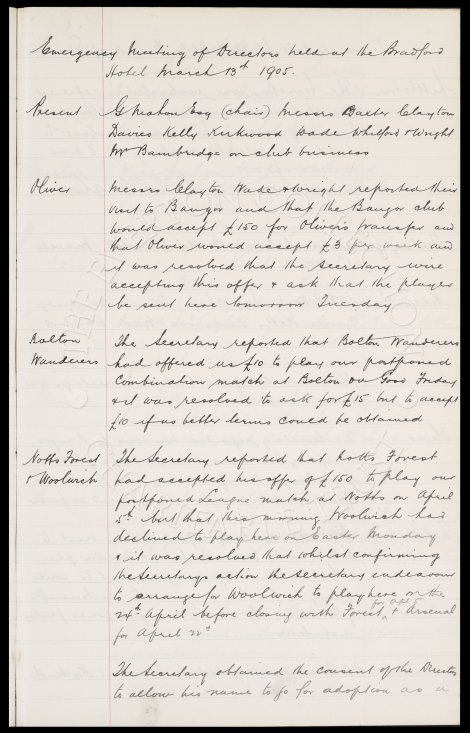 Emergency Meeting of Directors held at the Bradford
Hotel March 13th 1905.
Present
G Mahon Esq (chair) Messrs Baxter Clayton
Davies Kelly Kirkwood Wade Whitford & Wright
Mr Bainbridge on club business
Oliver
Messrs Clayton Wade & Wright reported their
visit to Bangor and that the Bangor club
would accept £150 for Oliver's transfer and
that Oliver would accept £3 per week and
it was resolved that the Secretary wire
accepting this offer & ask that the player
be sent here tomorrow Tuesday
Bolton
Wanderers
The Secretary reported that Bolton Wanderers
had offered us £10 to play our postponed
Combination match at Bolton on Good Friday
& it was resolved to ask for £15 but to accept
£10 if no better terms could be obtained
Notts Forest
& Woolwich
The Secretary reported that Notts Forest
had accepted his offer of £150 to play our
postponed League match at Notts on April
5th but that this morning Woolwich had
declined to play here on Easter Monday
& it was resolved that whilst confirming
the Secretarys action the Secretary endeavour
to arrange for Woolwich to play here on the
24th April before closing with Forest for apl 5 & Arsenal
for April 22d
The Secretary obtained the consent of the Directors
to allow his name to go for adoption as a